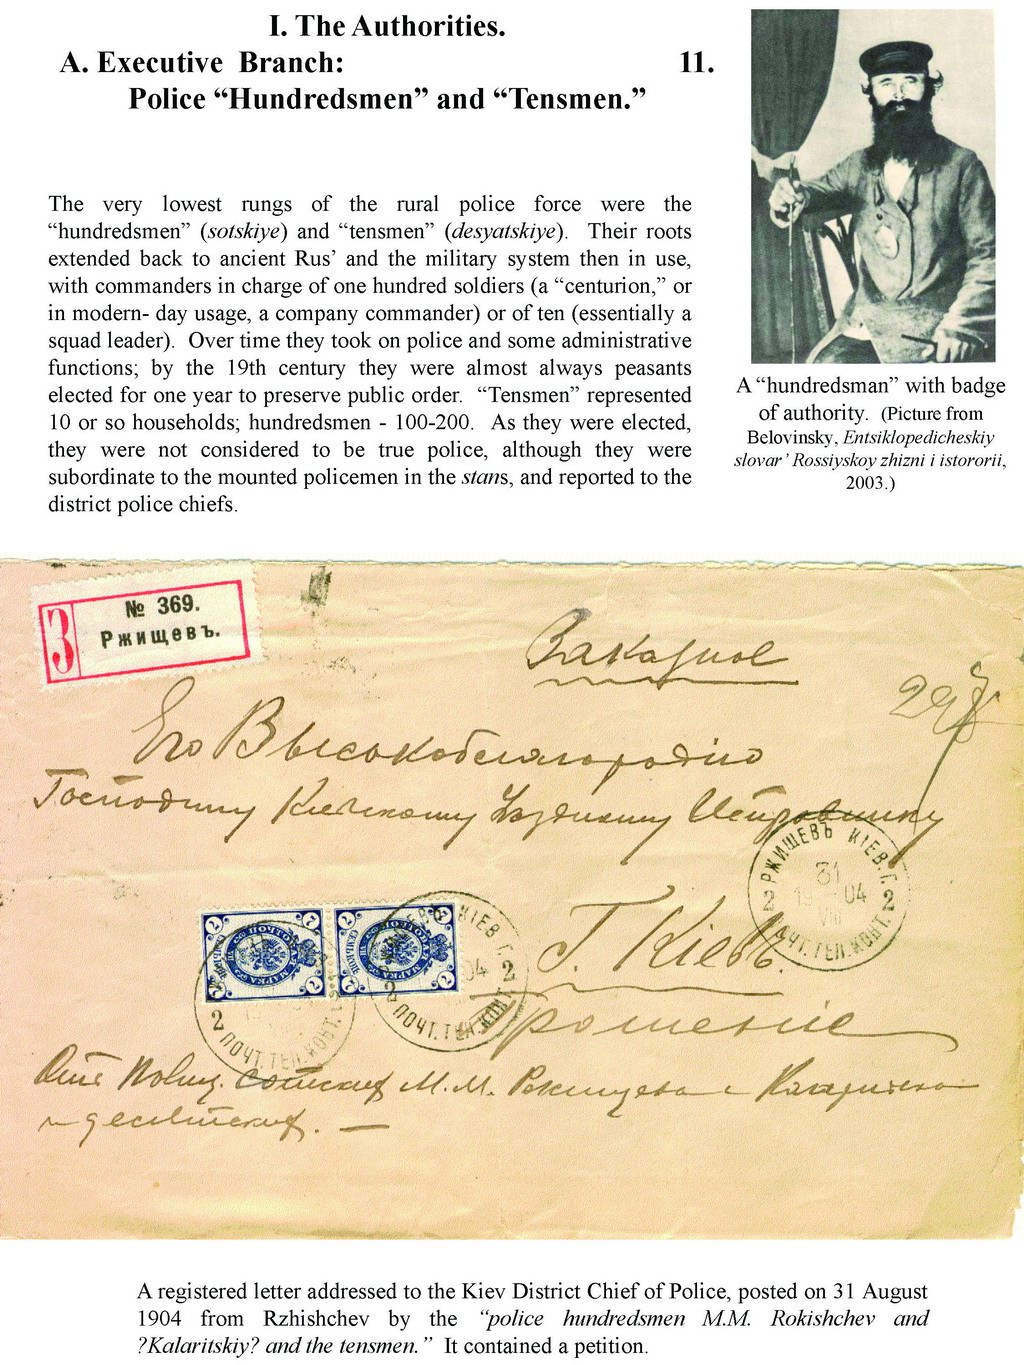 I. The Authorities.
A. Executive Branch: 11.
Police “Hundredsmen” and “Tensmen.”
The very lowest rungs of the rural police force were the
“hundredsmen” (sotskiye) and “tensmen” (desyatskiye). Their roots
extended back to ancient Rus’ and the military system then in use,
with commanders in charge of one hundred soldiers (a “centurion,” or
in modern- day usage, a company commander) or of ten (essentially a
squad leader). Over time they took on police and some administrative
functions; by the 19th century they were almost always peasants
elected for one year to preserve public order. “Tensmen” represented
10 or so households; hundredsmen - 100-200. As they were elected,
they were not considered to be true police, although they were
subordinate to the mounted policemen in the stans, and reported to the
district police chiefs.
A “hundredsman” with badge
of authority. (Picture from
Belovinsky, Entsiklopedicheskiy
slovar’ Rossiyskoy zhizni i istororii,
2003.)
З
№ 369.
Ржищевъ.
Заказное
297
Его Высокоблагородію
Господину Кіевскому Уѣздному Исправнику
РЖИЩЕВЪ КІЕВ. Г.
31
04
2 2
ПОЧТ. ТЕЛ. КОНТ.
Г. Кіевъ.
7 7
СЕМЬ КОП.
ПОЧТОВАЯ МАРКА
7 7
СЕМЬ КОП.
ПОЧТОВАЯ МАРКА
2 ПОЧТ. ТЕЛ. КОНТ.
КІЕВ Г.
04
2 2
ПОЧТ. ТЕЛ. КОНТ.
Прошеніе
Отъ Полиц. Сотскихъ М. М.
и десятскихъ.
A registered letter addressed to the Kiev District Chief of Police, posted on 31 August
1904 from Rzhishchev by the “police hundredsmen M.M. Rokishchev and
?Kalaritskiy? and the tensmen.” It contained a petition.